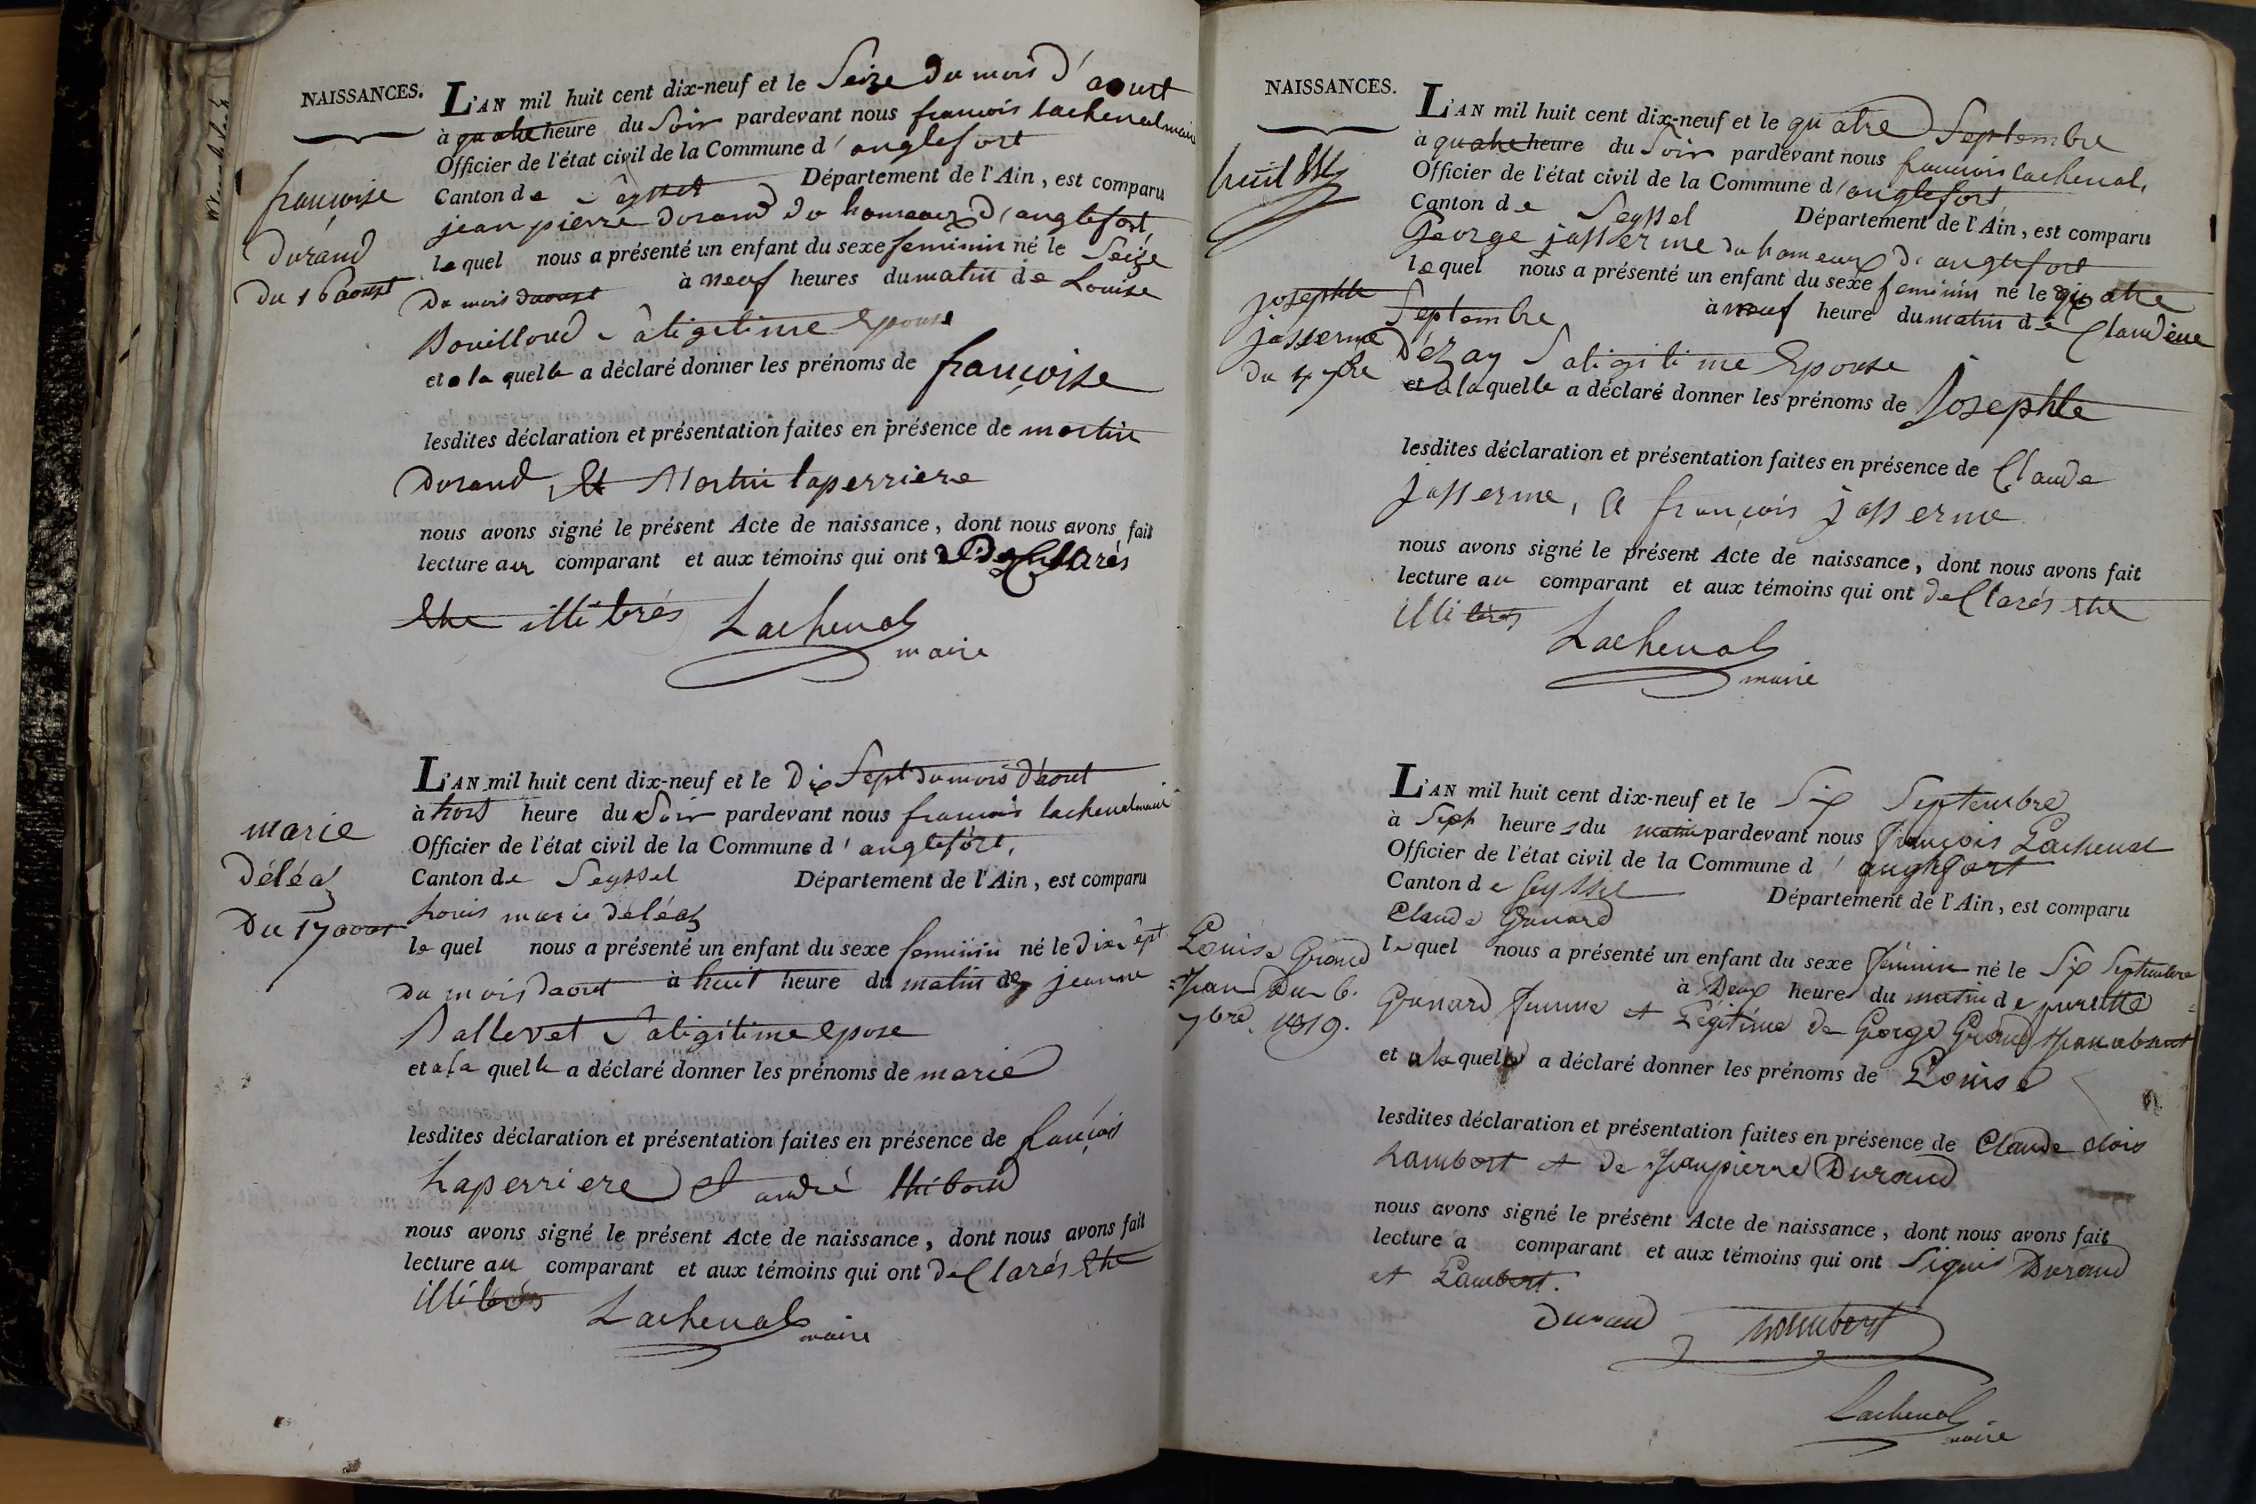 NAISSANCES.
L'AN mil huit cent dix-neuf et le Seize du mois d'aoust
à quatre heure du Soir pardevant nous francois lachenal maire
Officier de l'état civil de la Commune d'anglefort
Canton de Seyssel Département de l'Ain, est comparu
jean pierre durand du hameaux d'anglefort,
le quel nous a présenté un enfant du sexe feminin né le Seize
du mois daoust à neuf heures du matin de Louise
Bouilloud Sa ligitime Epouse
et a la quelle a déclaré donner les prénoms de françoise
lesdites déclaration et présentation faites en présence de martin
Durand Et Martin laperriere
nous avons signé le présent Acte de naissance, dont nous avons fait
lecture au comparant et aux témoins qui ont Declarés
Etre illitérés Lachenal
maire
françoise
Durand
du 16 aoust
L'AN mil huit cent dix-neuf et le Dix Sept du mois d'aout
à trois heure du Soir pardevant nous francois lachenal maire
Officier de l'état civil de la Commune d'anglefort,
Canton de Seyssel Département de l'Ain, est comparu
Louis marie déléaz
le quel nous a présenté un enfant du sexe feminin né le dix Sept
du mois daout à huit heure du matin de jeanne
Ballevet Sa ligitime Epose
et a la quelle a déclaré donner les prénoms de marie
lesdites déclaration et présentation faites en présence de françois
Laperriere Et andré thiboud
nous avons signé le présent Acte de naissance, dont nous avons fait
lecture au comparant et aux témoins qui ont déClarés Etre
illitérés Lachenal
maire
marie
Déléaz
Du 17 aout
NAISSANCES.
L'AN mil huit cent dix-neuf et le quatre Septembre
à quatre heure du Soir pardevant nous francois lachenal,
Officier de l'état civil de la Commune d'anglefort
Canton de Seyssel Département de l'Ain, est comparu
George jasserme du hameaux d'anglefort
le quel nous a présenté un enfant du sexe feminin né le quatre
Septembre à neuf heure du matin de Claudine
Dézay Sa ligitime Epouse
et a la quelle a déclaré donner les prénoms de Josephte
lesdites déclaration et présentation faites en présence de Claude
jasserme, Et françois jasserme
nous avons signé le présent Acte de naissance, dont nous avons fait
lecture au comparant et aux témoins qui ont déClarés Etre
illitérés Lachenal
maire
huit
josephte
jasserme
du 4 7bre
L'AN mil huit cent dix-neuf et le Six Septembre
à Sept heures du matin pardevant nous François Lachenal
Officier de l'état civil de la Commune d'anglefort
Canton de Seyssel Département de l'Ain, est comparu
Claude Grunard
le quel nous a présenté un enfant du sexe féminin né le Six Septembre
à Deux heures du matin de pierrette
Grunard femme et Légitime de George Giroud Jean absent
et a la quelle a déclaré donner les prénoms de Louise
lesdites déclaration et présentation faites en présence de Claude alois
Lambert et de Jeanpierre Durand
nous avons signé le présent Acte de naissance, dont nous avons fait
lecture a comparant et aux témoins qui ont Signés Durand
et Lambert.
Durand Lambert
Lachenal
maire
Louise Giroud
=Jean Du 6.
7bre. 1819.